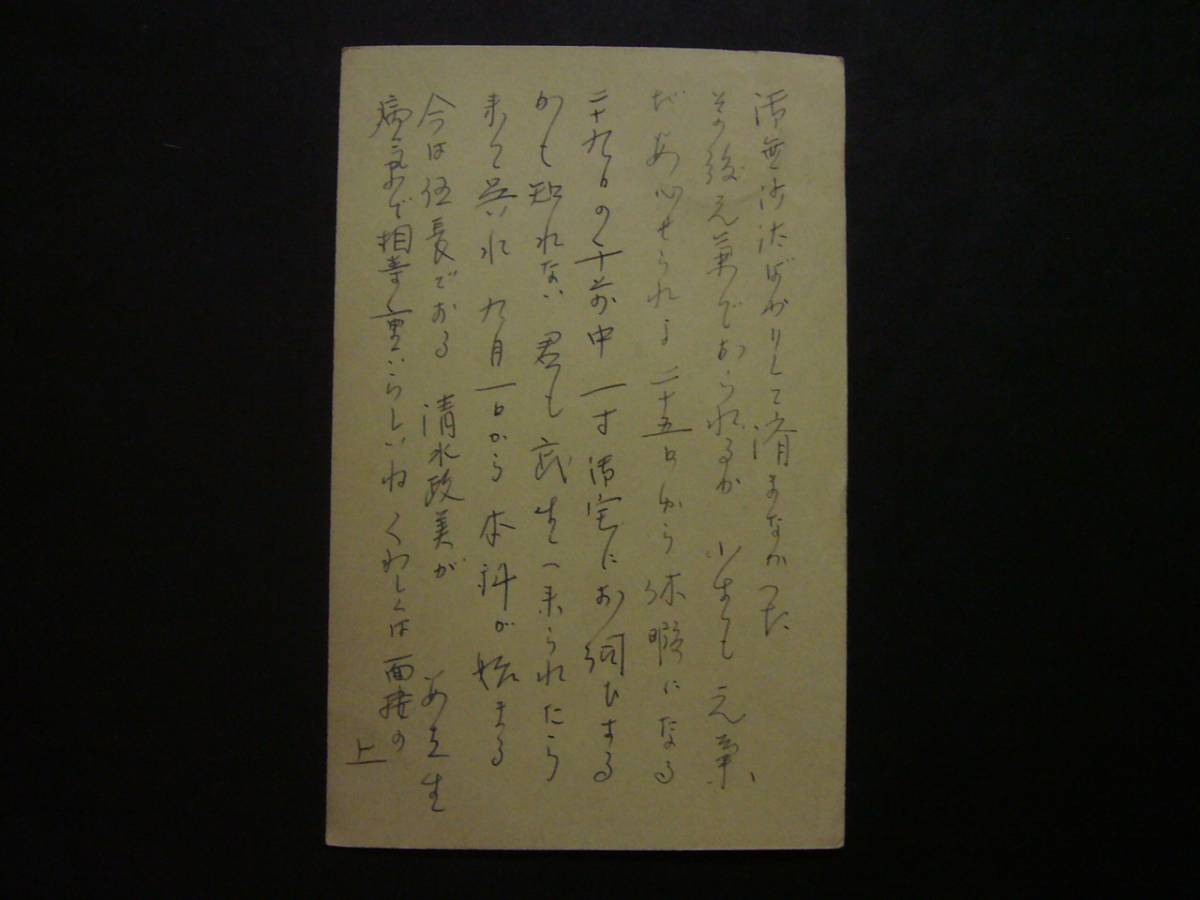 御無沙汰ばかりして済まなかった
その後元気でおられるか 小生も元気、
だ安心せられよ 二十五日から休暇になる
二十九日の午前中 一寸御宅にお伺ひする
かも知れない 君も武生へ来られたら
来て呉れ 九月一日から本科が始まる
今は伍長でおる 清水政美が
病気で相当重いらしいね くわしくは面接の
上